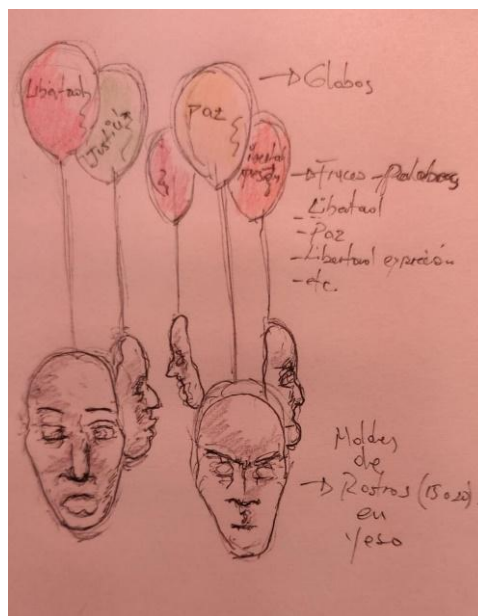 Libertad
Justicia
Paz
Libertad
→ Globos
→ Frases - Palabras
Libertad
- Paz
- Libertad expreción
- etc.
Moldes
de
→ Rostros (15 o 20)
en
Yeso